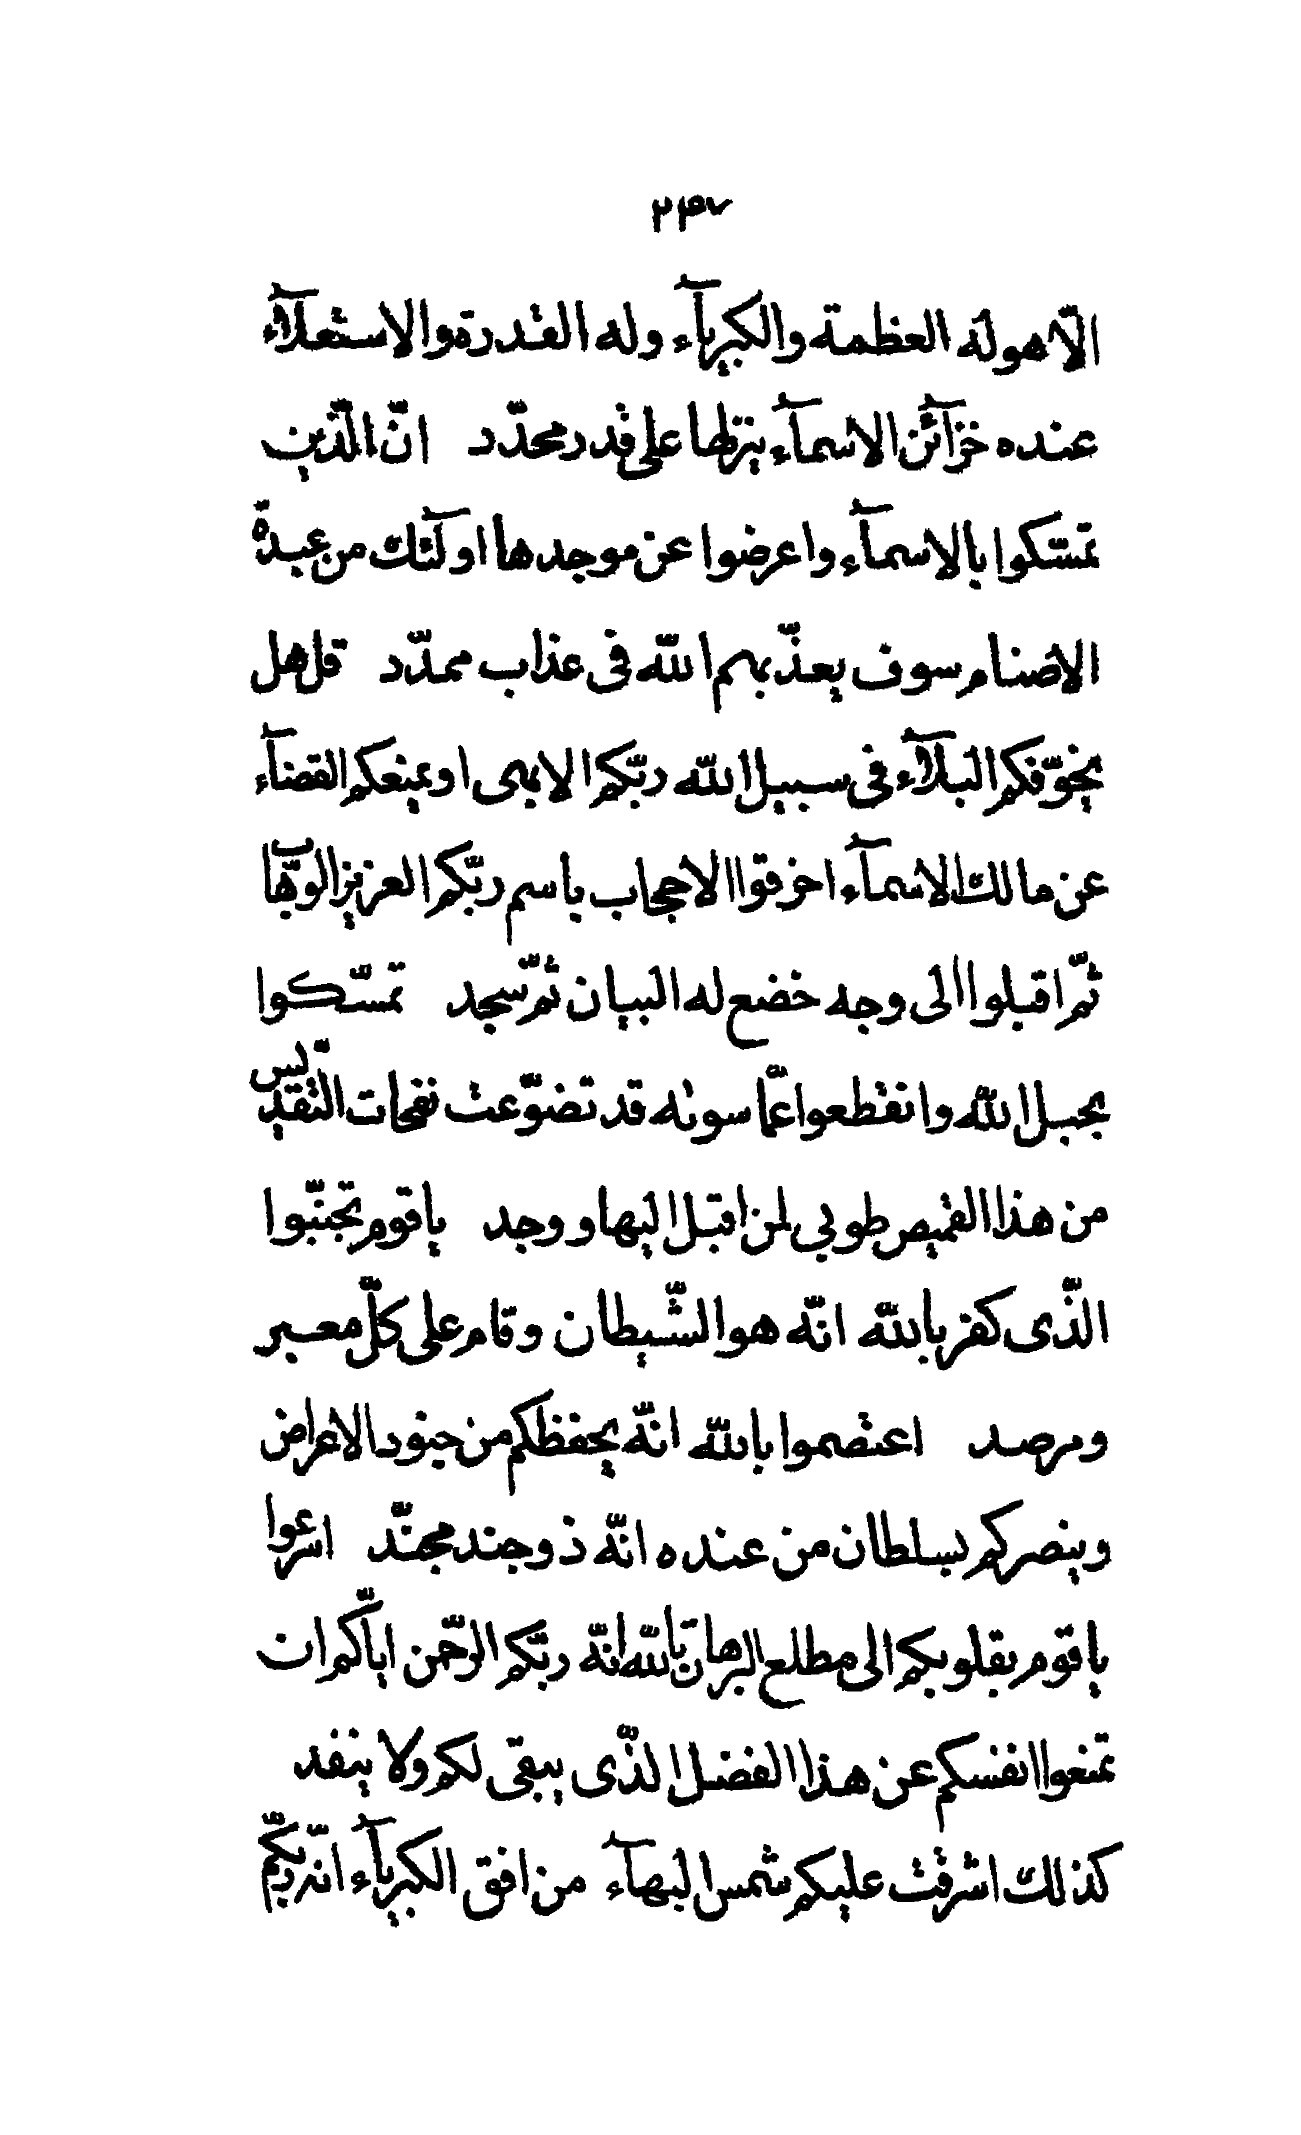 ۲۴۷
الّا هو له العظمة والكبريآء وله القدرة والاستعلآء
عنده خزآئن الاسمآء ينزلها على قدر محدّد انّ الّذين
تمسّكوا بالاسمآء واعرضوا عن موجدها اولٓئك من عبدة
الاصنام سوف يعذّبهم الله فى عذاب ممدّد قل هل
يخوّفكم البلآء فى سبيل الله ربّكم الابهى او يمنعكم القضآء
عن مالك الاسمآء اخرقوا الاحجاب باسم ربّكم العزيز الوهّاب
ثمّ اقبلوا الى وجه خضع له البيان ثمّ سجد تمسّكوا
بحبل الله وانقطعوا عمّا سوىه قد تضوّعت نفحات التّقديس
من هذا القميص طوبى لمن اقبل اليها ووجد يا قوم تجنّبوا
الّذى كفر بالله انّه هو الشّيطان وقام على كلّ معبر
ومرصد اعتصموا بالله انّه يحفظكم من جنود الاعراض
وينصركم بسلطان من عنده انّه ذو جند مجنّد اسرعوا
يا قوم بقلوبكم الى مطلع البرهان تالله انّه ربّكم الرّحمن ايّاكم ان
تمنعوا انفسكم عن هذا الفضل الّذى يبقى لكم ولا ينفد
كذلك اشرقت عليكم شمس البهآء من افق الكبريآء انّه ربّكم